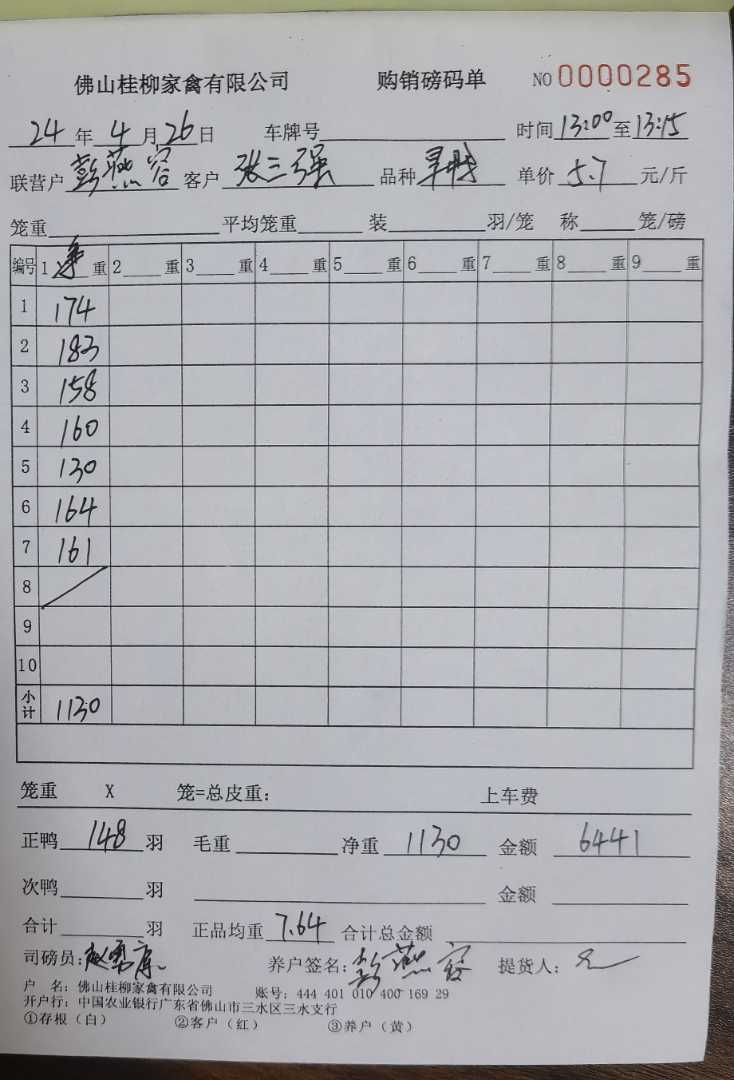 佛山桂柳家禽有限公司 购销磅码单 NO 0000285
24 年 4 月 26 日 车牌号 时间 13:00 至 13:15
联营户 彭燕容 客户 张三强 品种 单价 5.7 元/斤
笼重 平均笼重 装 羽/笼 称 笼/磅
编号 1 净 重 2 重 3 重 4 重 5 重 6 重 7 重 8 重 9 重
1 174
2 183
3 158
4 160
5 130
6 164
7 161
8
9
10
小计 1130
笼重 X 笼=总皮重: 上车费
正鸭 148 羽 毛重 净重 1130 金额 6441
次鸭 羽 金额
合计 羽 正品均重 7.64 合计总金额
司磅员: 养户签名: 彭燕容 提货人:
户 名: 佛山桂柳家禽有限公司 账号: 444 401 010 400 169 29
开户行: 中国农业银行广东省佛山市三水区三水支行
①存根(白) ②客户(红) ③养户(黄)